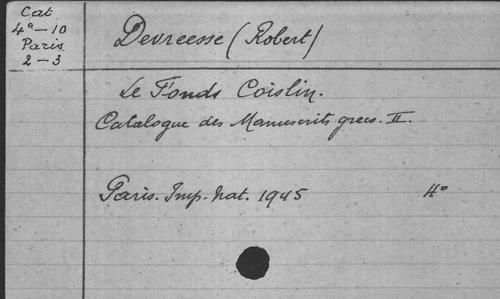 Cat
4º-10
Paris
2-3
Devreesse (Robert)
Le Fonds Coislin.
Catalogue des Manuscrits grecs. II.
Paris. Imp. Nat. 1945 4º